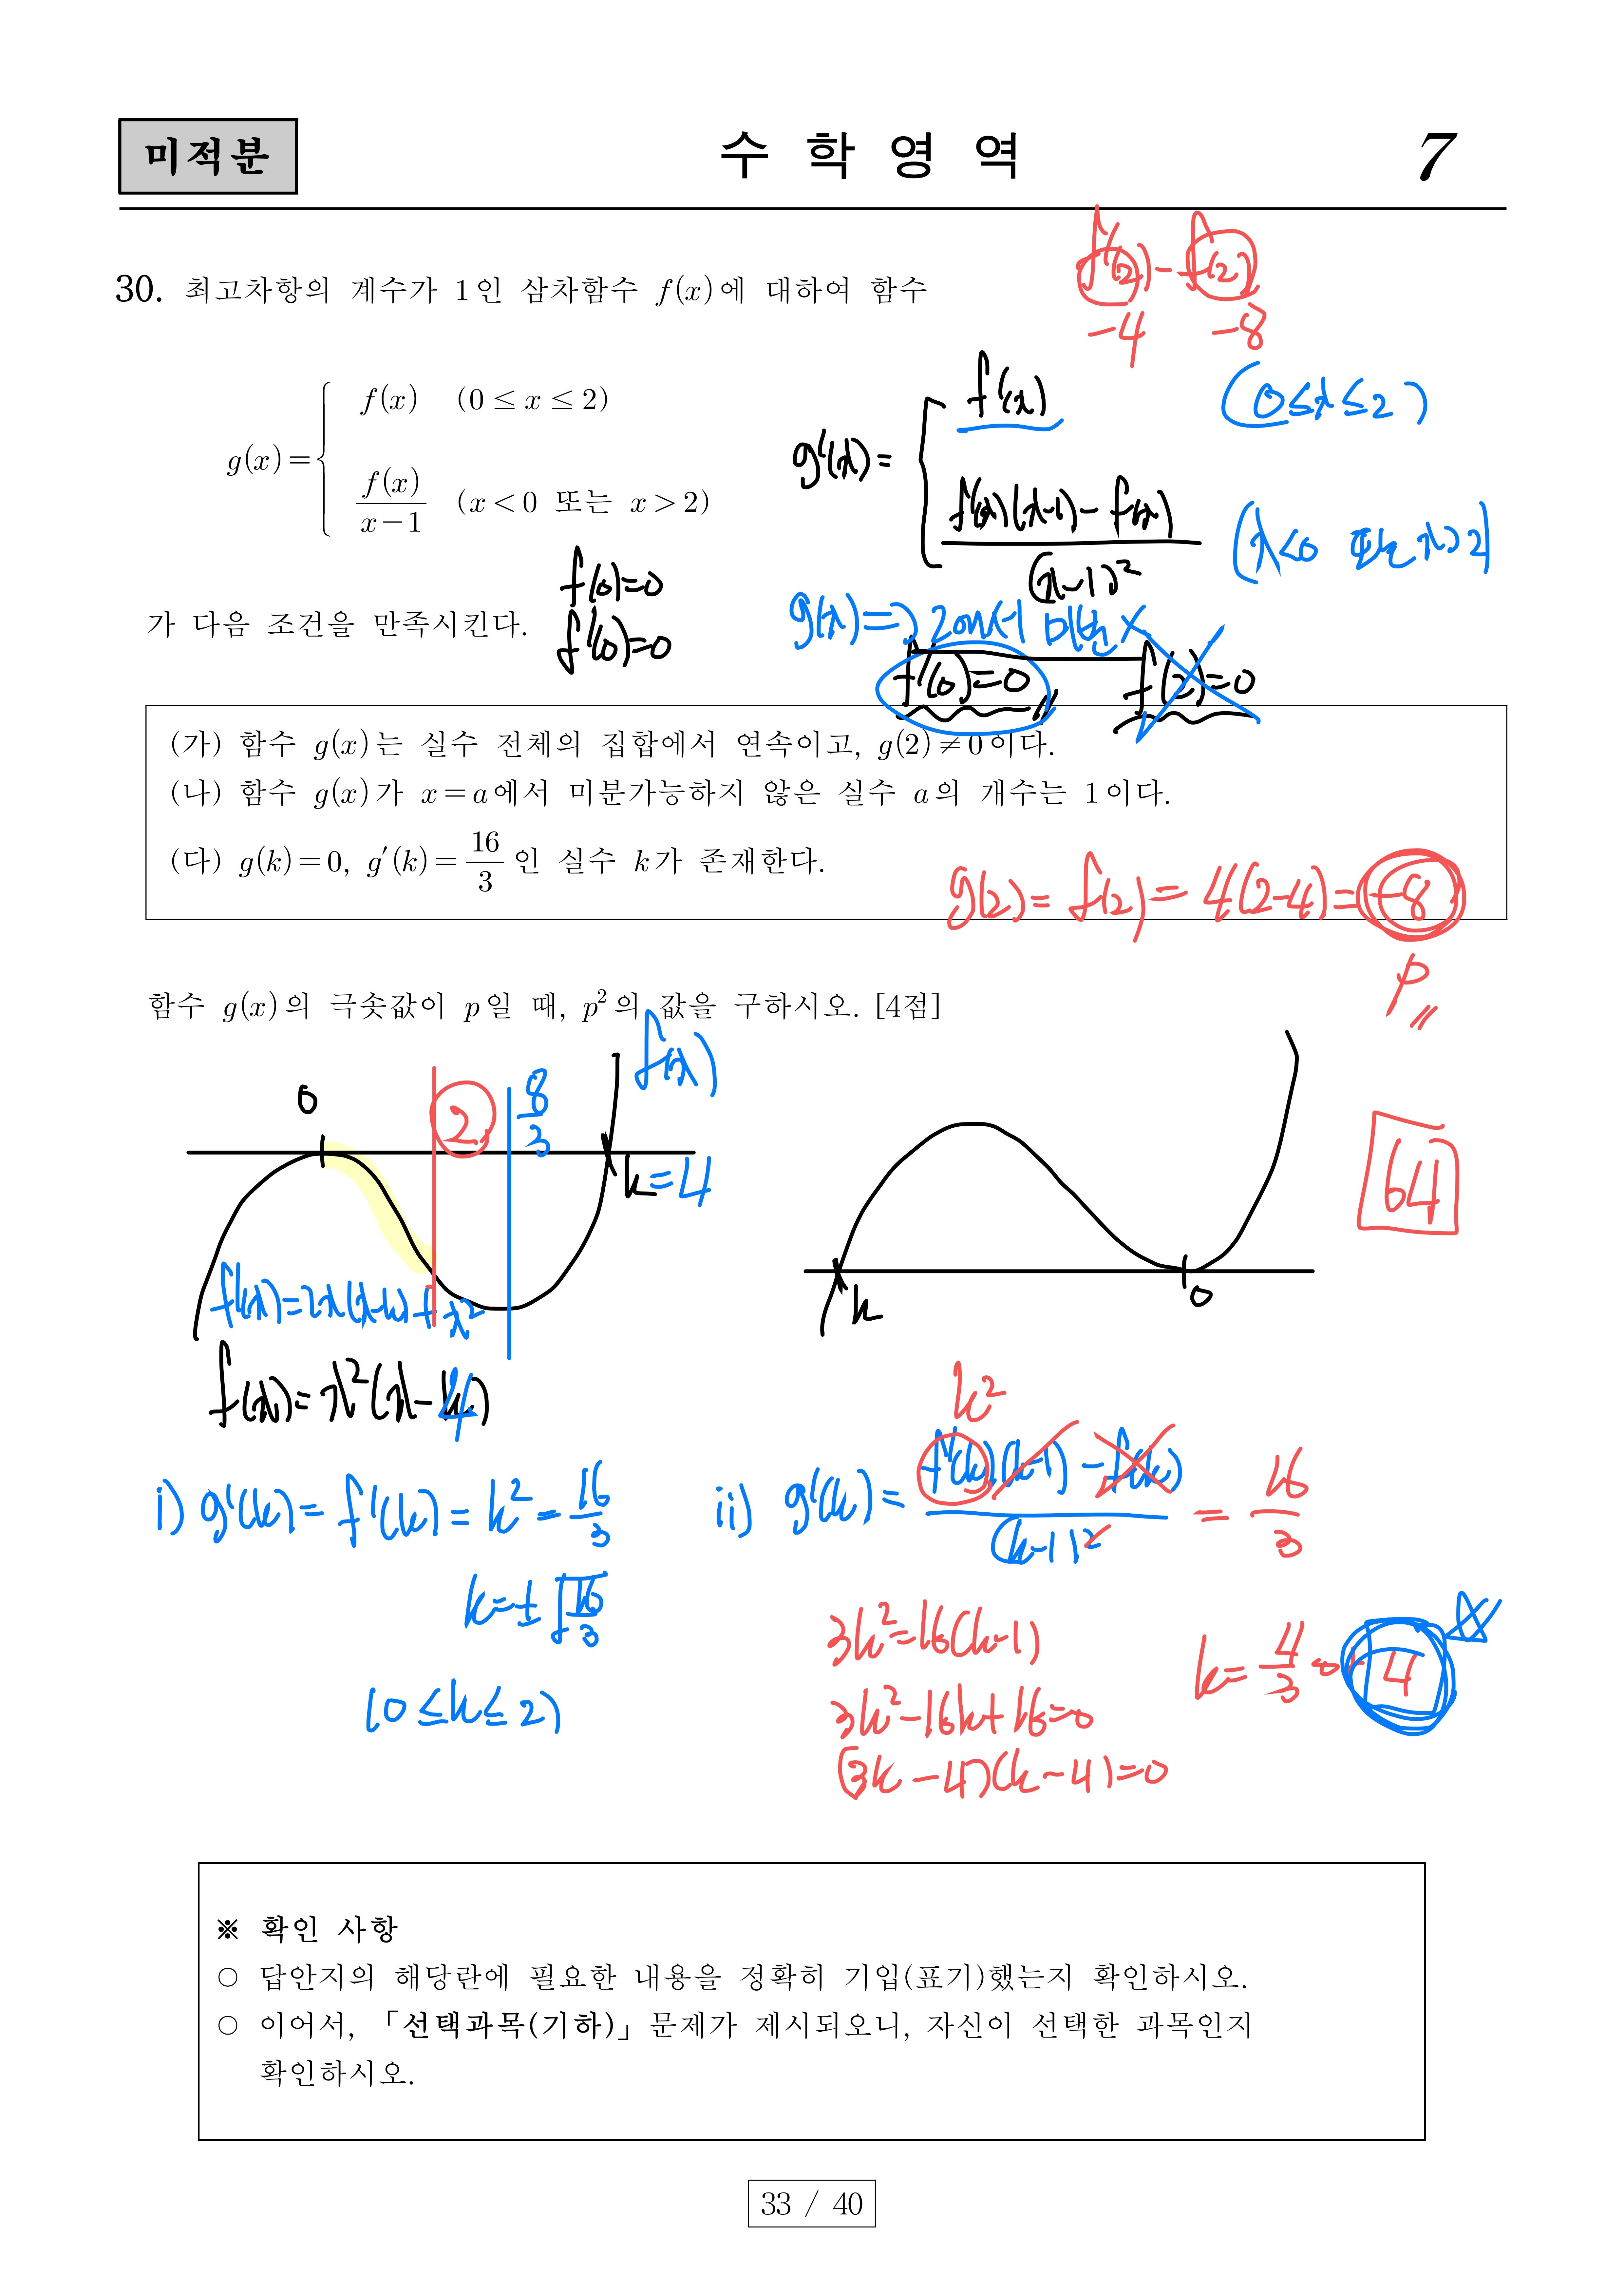 미적분
수 학 영 역
7
30. 최고차항의 계수가 1인 삼차함수 f(x)에 대하여 함수
f'(2) - f(2)
-4 -8
g(x)= { f(x) (0 ≤ x ≤ 2)
f(x)/(x-1) (x < 0 또는 x > 2)
g'(x)= { f'(x) (0≤x≤2)
f'(x)(x-1) - f(x) / (x-1)² (x<0 또는 x>2)
가 다음 조건을 만족시킨다.
f(0)=0
f'(0)=0
g(x)=> 2에서 미분 X
f'(0)=0 f(2)=0
(가) 함수 g(x)는 실수 전체의 집합에서 연속이고, g(2)≠0이다.
(나) 함수 g(x)가 x=a에서 미분가능하지 않은 실수 a의 개수는 1이다.
(다) g(k)=0, g'(k)=16/3인 실수 k가 존재한다.
g(2)= f(2)= 4(2-4)= -8
p
함수 g(x)의 극솟값이 p일 때, p²의 값을 구하시오. [4점]
f(x)
0 2 8/3
k=4
f'(x)=2x(x-k)+x²
f(x)=x²(x-4)
k 0
64
i) g'(k)= f'(k)= k²= 16/3
k=±√16/3
(0≤k≤2)
k²
ii) g'(k)= f'(k)(k-1) - f(k) / (k-1)² = 16/3
3k²=16(k-1)
3k²-16k+16=0
(3k-4)(k-4)=0
k= 4/3 or 4
※ 확인 사항
○ 답안지의 해당란에 필요한 내용을 정확히 기입(표기)했는지 확인하시오.
○ 이어서, 「선택과목(기하)」 문제가 제시되오니, 자신이 선택한 과목인지
확인하시오.
33 / 40